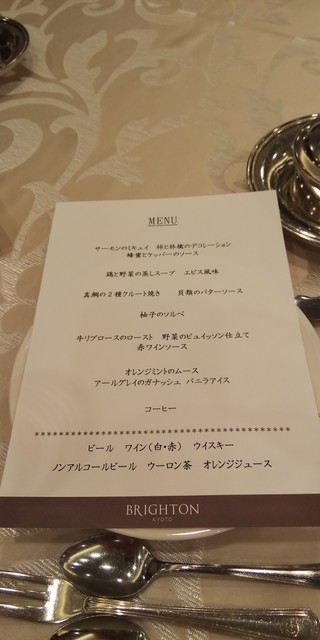 MENU
サーモンのミキュイ　柿と林檎のデコレーション
蜂蜜とケッパーのソース
鶏と野菜の蒸しスープ　エピス風味
真鯛の2種クルート焼き　　貝類のバターソース
柚子のソルベ
牛リブロースのロースト　野菜のビュイッソン仕立て
赤ワインソース
オレンジミントのムース
アールグレイのガナッシュ　バニラアイス
コーヒー
ビール　ワイン（白・赤）　ウイスキー
ノンアルコールビール　ウーロン茶　オレンジジュース
BRIGHTON
KYOTO